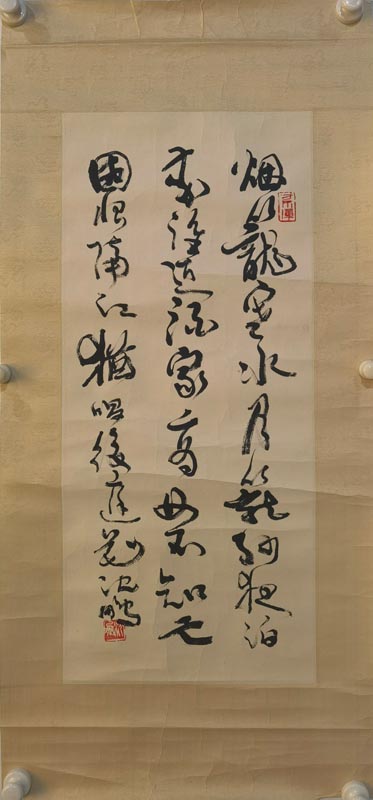 烟籠寒水月籠沙夜泊
秦淮近酒家商女不知亡
國恨隔江猶唱後庭花沈鵬